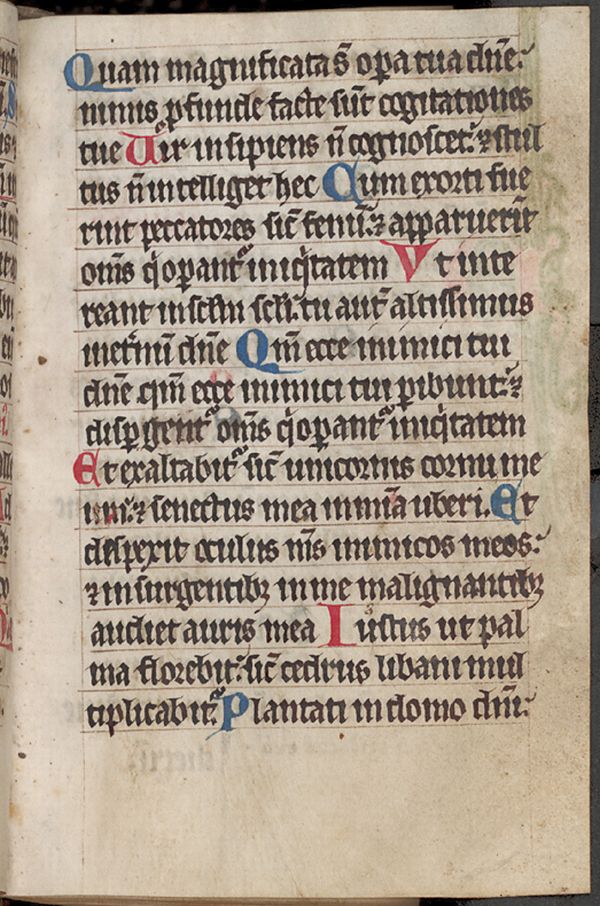 Quam magnificata s̄ opa tua dn̄e.
nimis pfunde facte sūt cogitationes
tue Uir insipiens n̄ cognoscet: ⁊ stul
tus n̄ intelliget hec Cum exorti fue
rint peccatores sic̄ fenū: ⁊ apparuerīt
om̄s q̇ opant᷑ iniq̇tatem Vt inte
reant in sc̄lm sc̄li. tu aut̄ altissimus
inet̄nū dn̄e Qm̄ ecce inimici tui
dn̄e. qm̄ ecce inimici tui pibunt: ⁊
dispgent᷑ om̄s q̇ opant᷑ iniq̇tatem
Et exaltabit᷑ sic̄ unicornis cornu me
um: ⁊ senectus mea in mīa uberi. Et
despexit oculus m̄s inimicos meos:
⁊ insurgentibꝫ in me malignantibꝫ
audiet auris mea Iustus ut pal
ma florebit: sic̄ cedrus libani mul
tiplicabit᷑. Plantati in domo dn̄i: